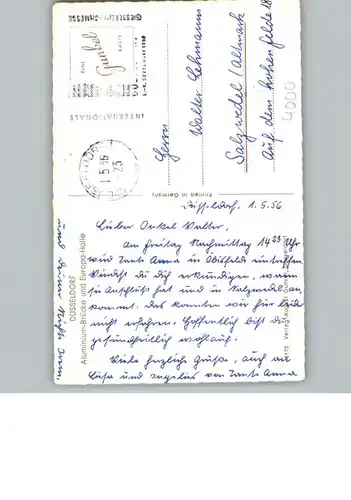 GIESSEREI-FACHMESSE
EINE
Günkel
KARTE
INTERNATIONALE
1.5.56
-23
Herrn
Walter Lehmann
Salzwedel/Altmark
Auf dem hohen felde 18
4000
Printed in Germany
Düsseldorf, 1.5.56
Lieber Onkel Walter.
Am Freitag Nachmittag 14 23 Uhr
wird Tante Anna in Öbisfelde eintreffen
Würdest du dich erkundigen, wann
sie Anschluß hat und in Salzwedel an-
kommt. das konnten wir hier leider
nicht erfahren. Hoffentlich bist du
gesundheitlich wohlauf.
Viele herzliche Grüße, auch an
Luise und von Tante Anna
und Deiner Nichte
DÜSSELDORF
Aluminium-Brücke und Europa-Halle
Verlag August